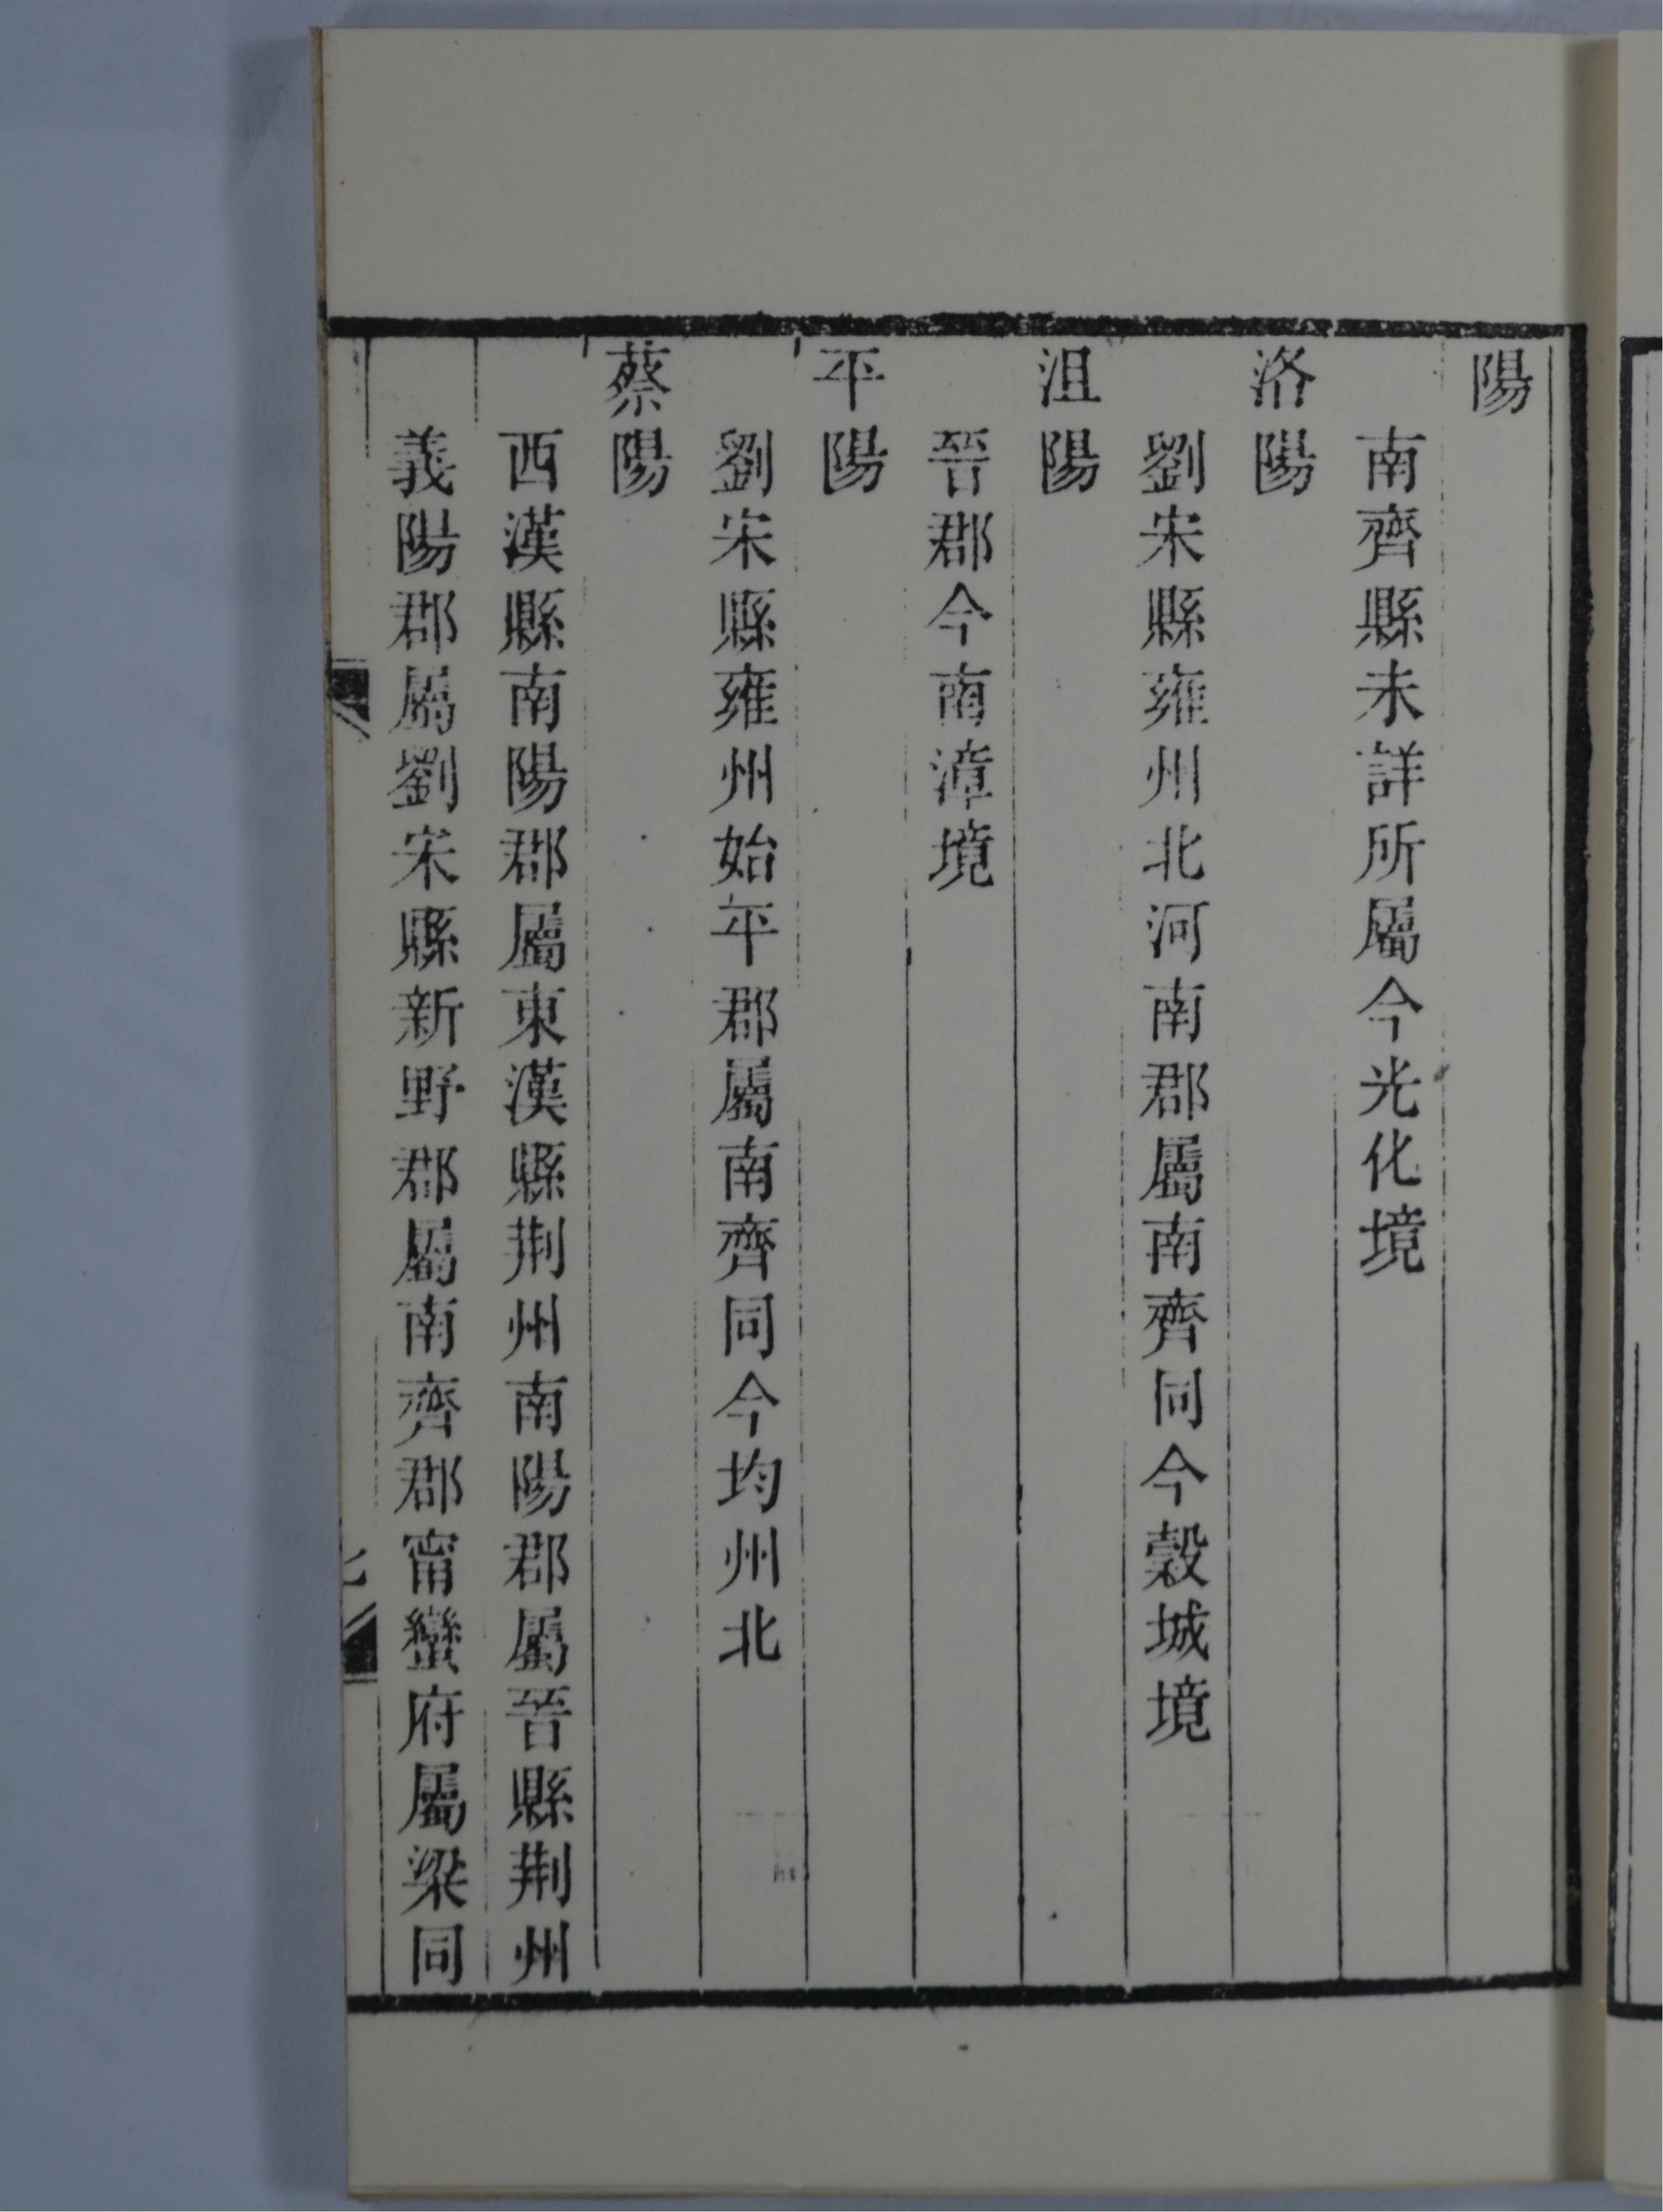 陽
南齊縣未詳所屬今光化境
洛陽
劉宋縣雍州北河南郡屬南齊同今穀城境
沮陽
晉郡今南漳境
平陽
劉宋縣雍州始平郡屬南齊同今均州北
蔡陽
西漢縣南陽郡屬東漢縣荆州南陽郡屬晉縣荆州
義陽郡屬劉宋縣新野郡屬南齊郡甯蠻府屬梁同